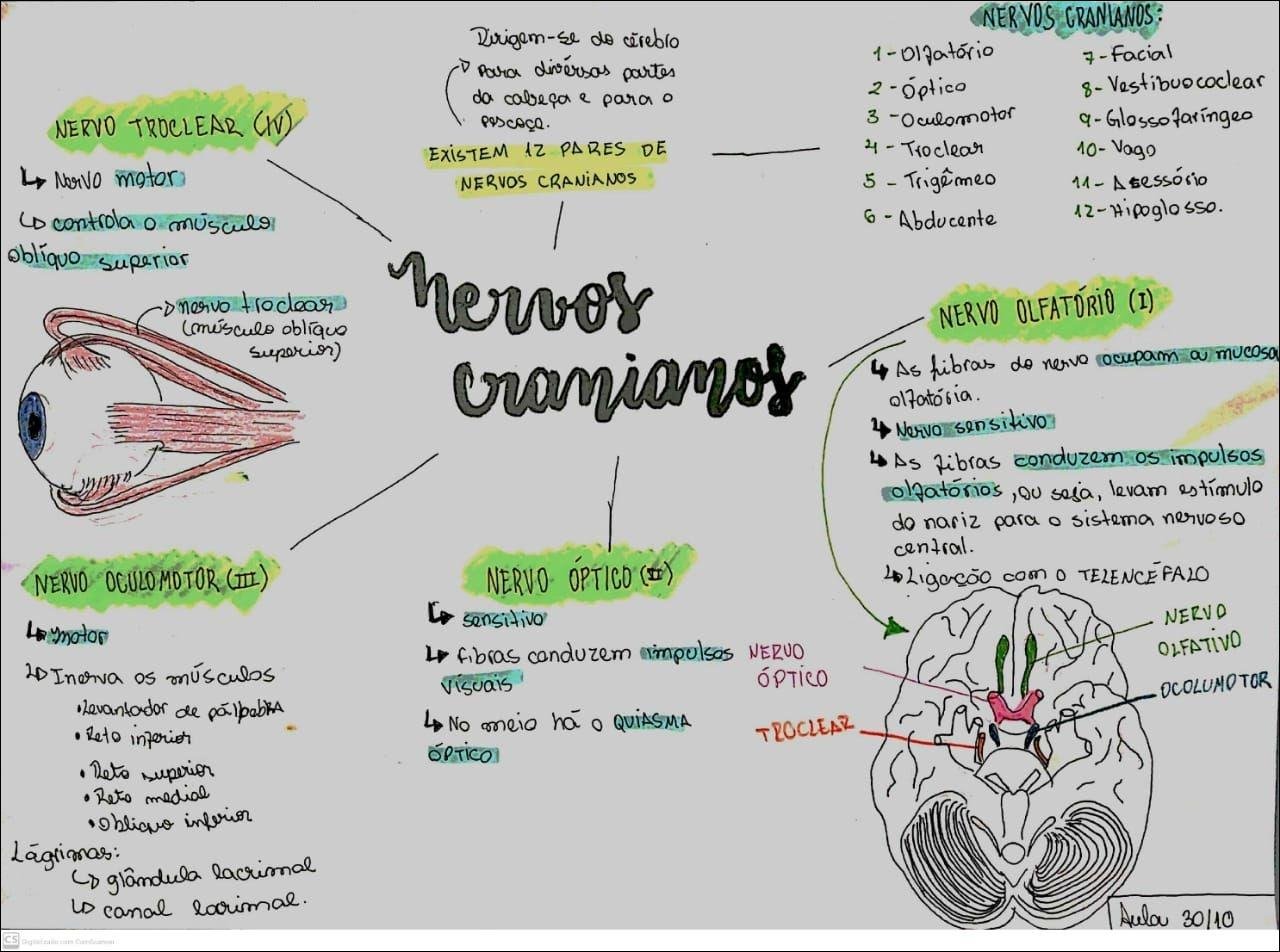 NERVOS CRANIANOS:
1-Olfatório
2-Óptico
3-Oculomotor
4-Troclear
5-Trigêmeo
6-Abducente
7-Facial
8-Vestibuococlear
9-Glossofaríngeo
10-Vago
11-Acessório
12-Hipoglosso.
Dirigem-se do cérebro
para diversas partes
da cabeça e para o
pescoço.
EXISTEM 12 PARES DE
NERVOS CRANIANOS
NERVO TROCLEAR (IV)
Nervo motor
controla o músculo
oblíquo superior
nervo troclear
(músculo oblíquo
superior)
Nervos
cranianos
NERVO OLFATÓRIO (I)
As fibras do nervo ocupam a mucosa
olfatória.
Nervo sensitivo
As fibras conduzem os impulsos
olfatórios, ou seja, levam estímulo
do nariz para o sistema nervoso
central.
Ligação com o TELENCÉFALO
NERVO OCULOMOTOR (III)
motor
Inerva os músculos
•Levantador de pálpebra
•Reto inferior
•Reto superior
•Reto medial
•Oblíquo inferior
Lágrimas:
glândula lacrimal
canal lacrimal.
NERVO ÓPTICO (II)
sensitivo
fibras conduzem impulsos
visuais
No meio há o QUIASMA
ÓPTICO
NERVO
ÓPTICO
TROCLEAR
NERVO
OLFATIVO
OCOLUMOTOR
Aula 30/10
CS Digitalizado com CamScanner